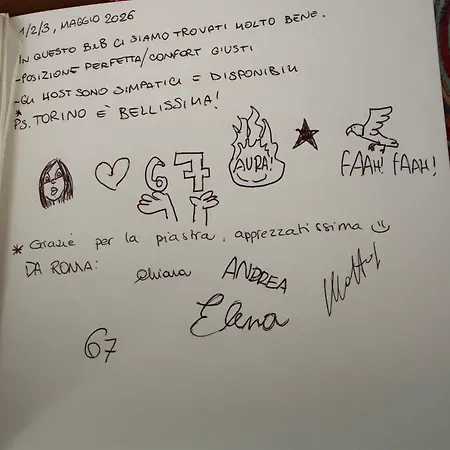 1/2/3, MAGGIO 2026
IN QUESTO B&B CI SIAMO TROVATI MOLTO BENE.
-POSIZIONE PERFETTA/CONFORT GIUSTI
-GLI HOST SONO SIMPATICI E DISPONIBILI
*
PS. TORINO È BELLISSIMA!
67
AURA!
FAAH! FAAH!
* Grazie per la piastra, apprezzatissima
DA ROMA:
Chiara
ANDREA
Elena
67